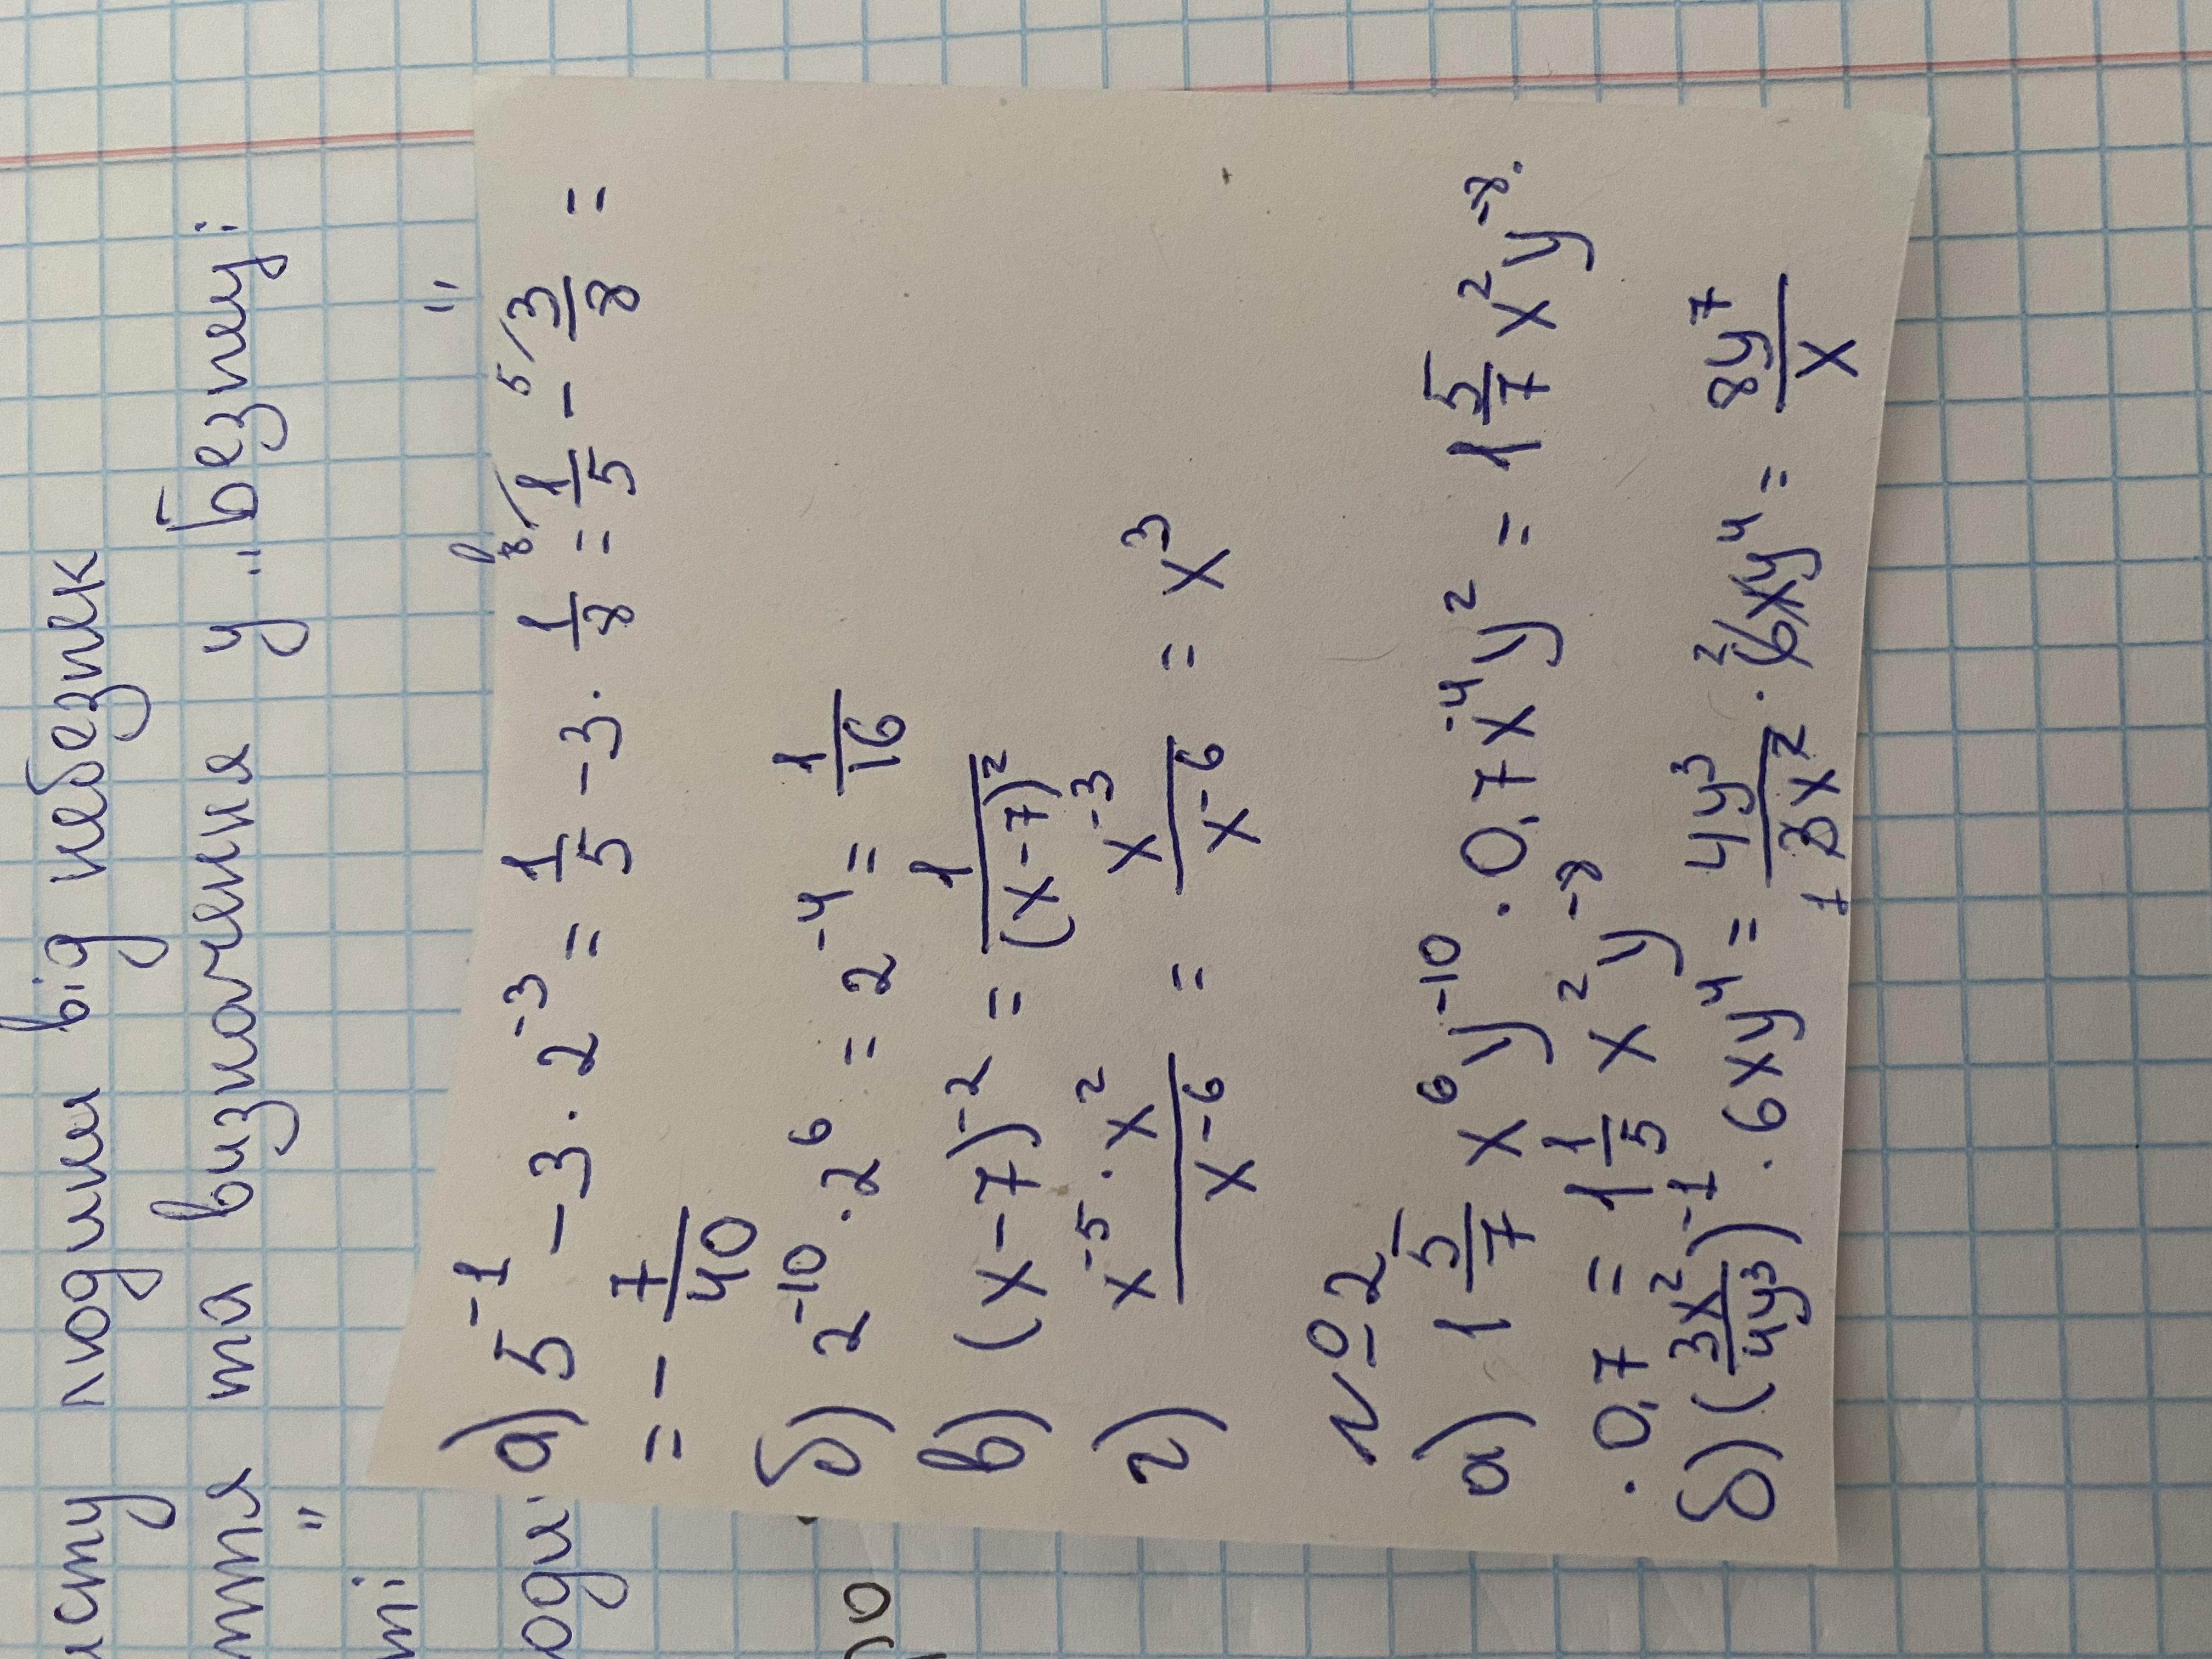 исту людини від небезпек
ття та визначення у „Безпеці:
ті: "
"
оди
а) 5⁻¹ - 3 · 2⁻³ = 1/5 - 3 · 1/8 = ⁸/1/5 - ⁵/3/8 =
= - 7/40
б) 2⁻¹⁰ · 2⁶ = 2⁻⁴ = 1/16
в) (x - 7)⁻² = 1/(x - 7)²
г) x⁻⁵ · x²/x⁻⁶ = x⁻³/x⁻⁶ = x³
№2
а) 1 5/7 x⁶y⁻¹⁰ · 0,7x⁻⁴y² = 1 5/7 x²y⁻⁸ ·
· 0,7 = 1 1/5 x²y⁻⁸
б) (3x²/4y³)⁻¹ · 6xy⁴ = 4y³/3x² · 6xy⁴ = 8y⁷/x